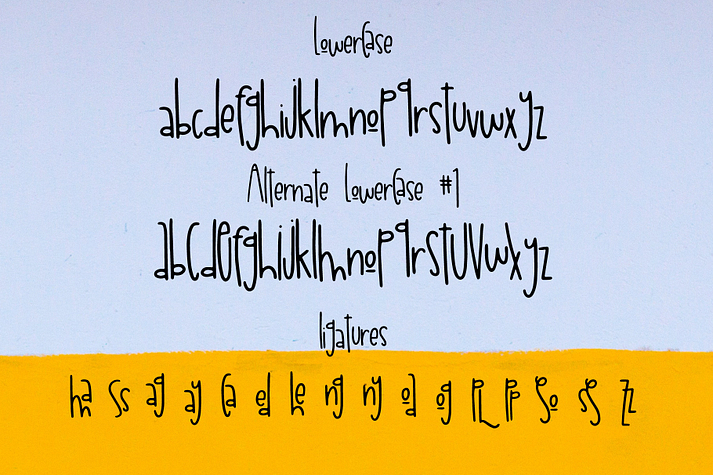 LowerCase
abcdefghijklmnopqrstuvwxyz
Alternate LowerCase #1
abCdefghijklmnopqrstUVwxyz
ligatures
ha ss ag ay Ca ed he ng ny od og PL PP So sp zz